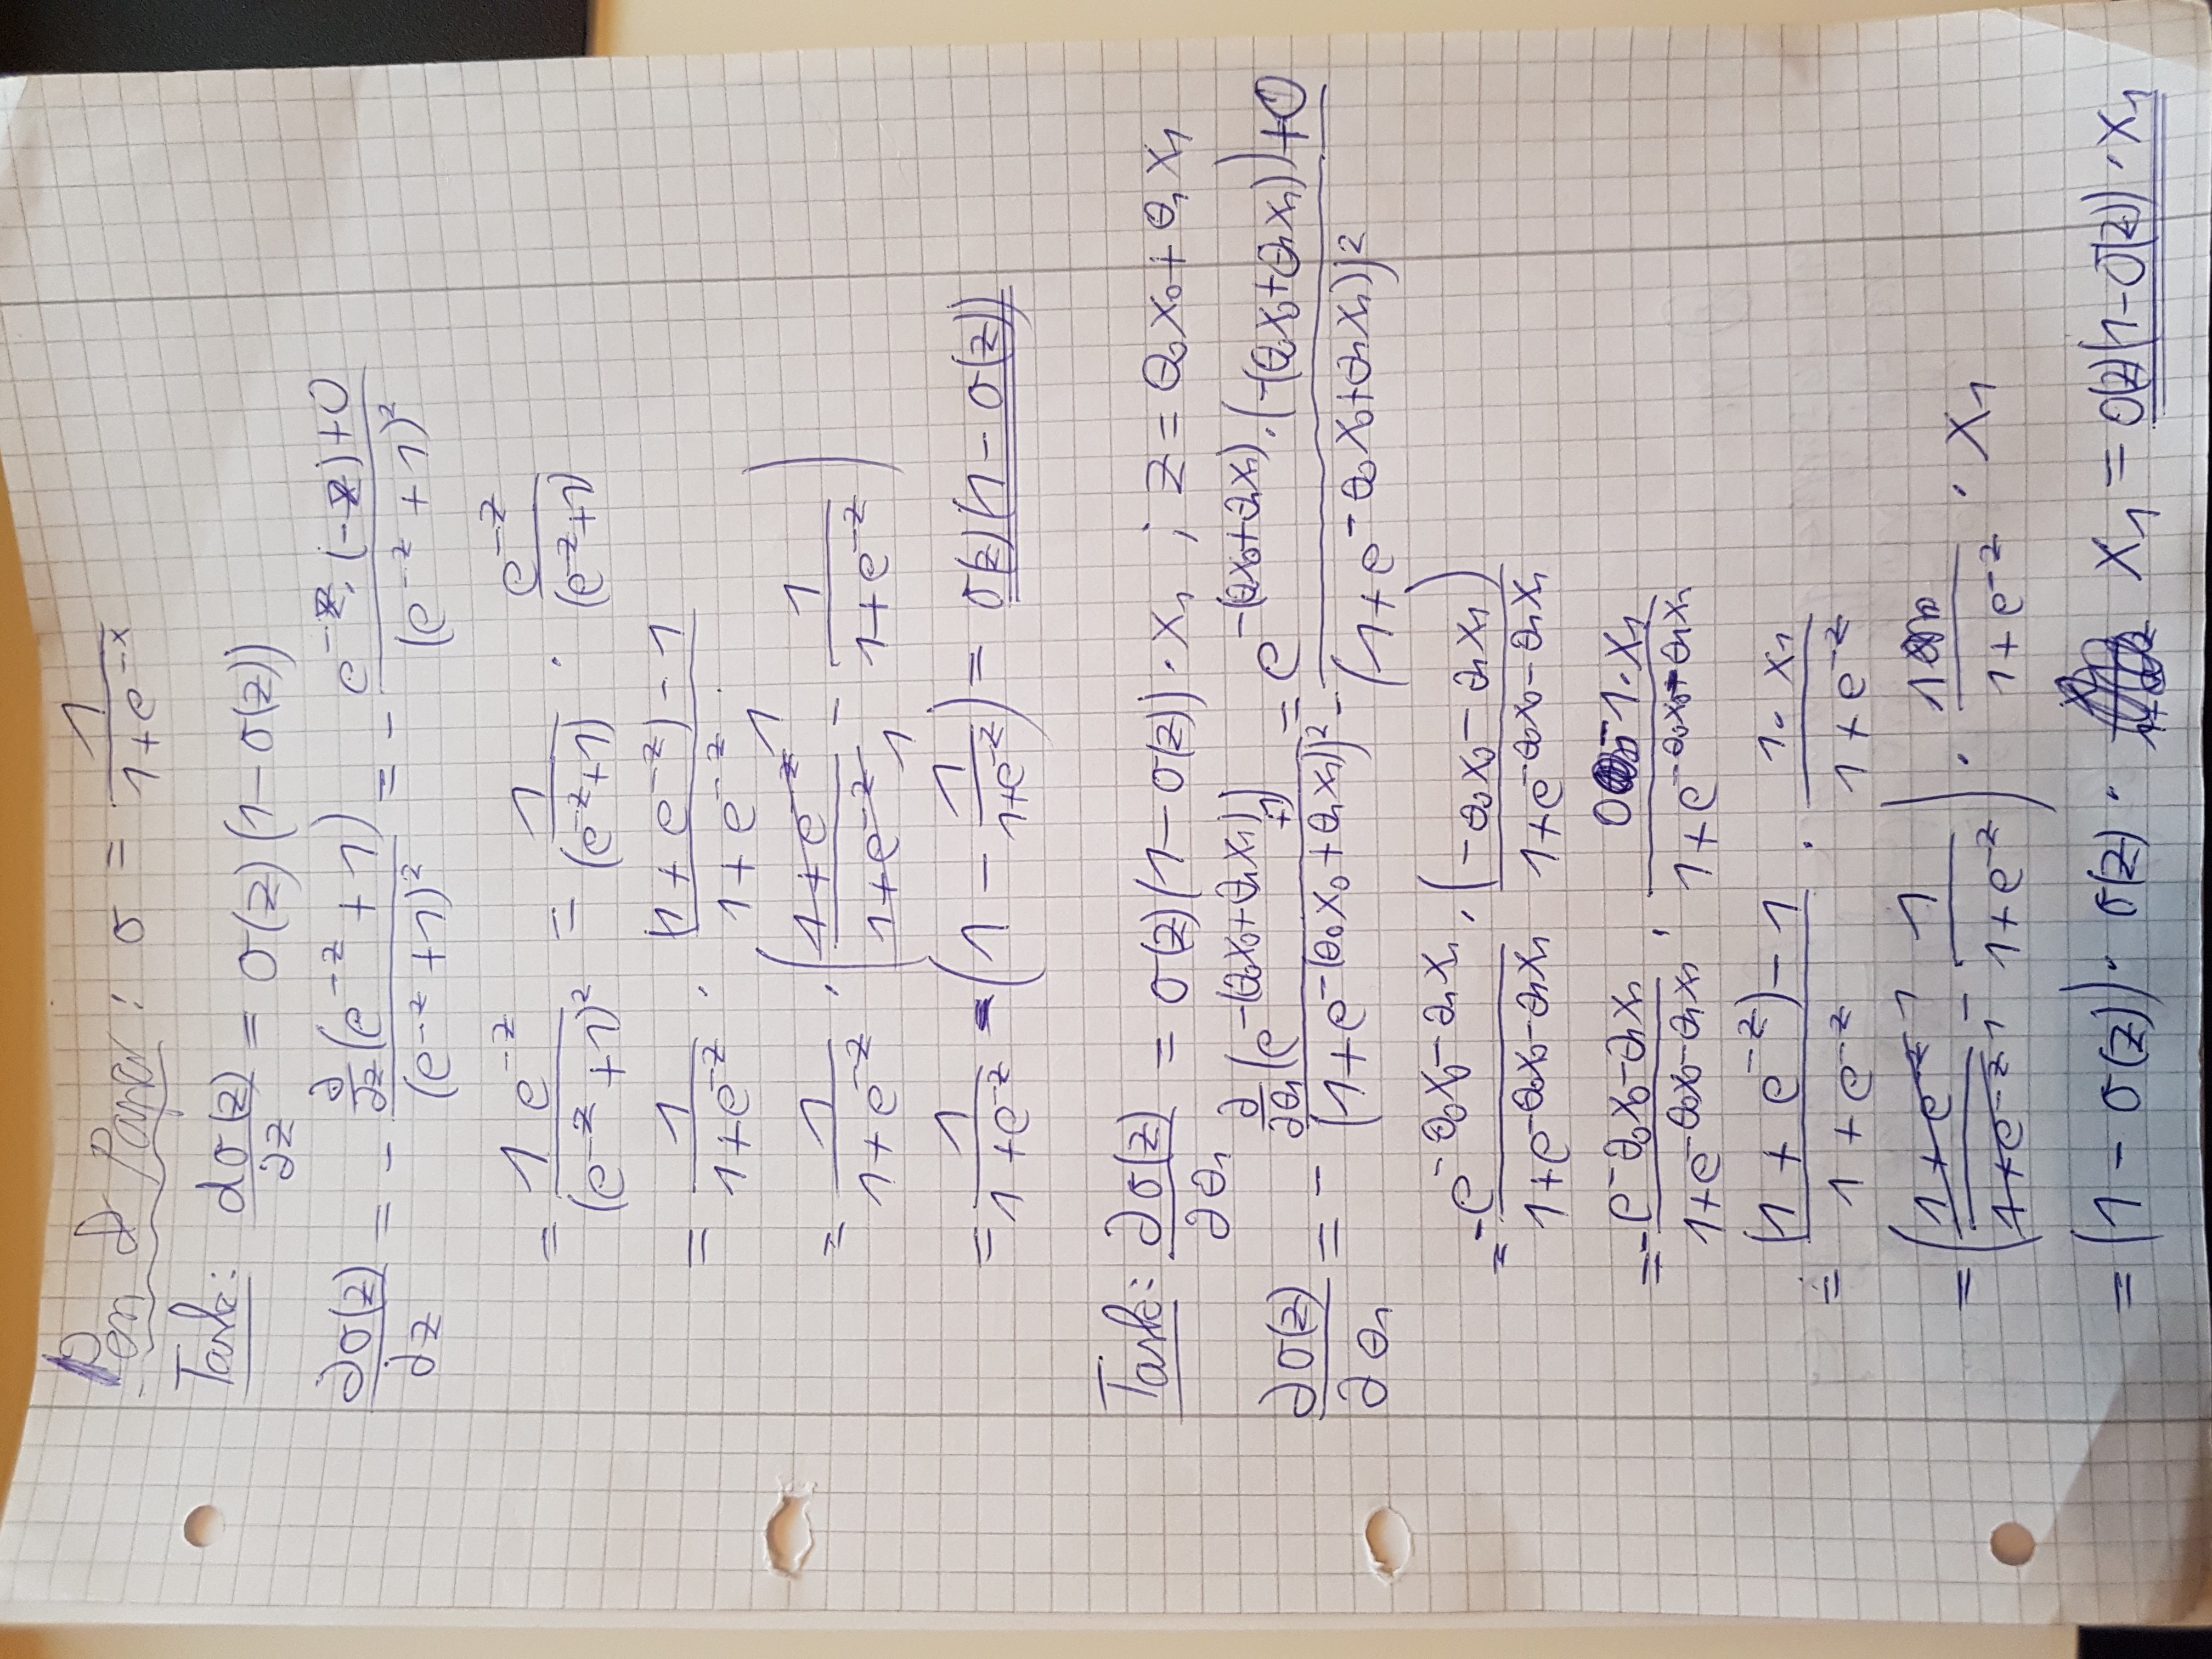 Pen & Paper : σ = 1/(1+e^{-x})
Task: dσ(z)/∂z = σ(z)(1-σ(z))
∂σ(z)/∂z = - (∂/∂z(e^{-z} + 1))/((e^{-z} +1)^2) = - (e^{-z} · (-z) + 0)/((e^{-z} + 1)^2)
= (1 e^{-z})/((e^{-z} +1)^2) = 1/((e^{-z}+1)) · e^{-z}/((e^{-z}+1))
= 1/(1+e^{-z}) · ((1 + e^{-z}) - 1)/(1 + e^{-z})
= 1/(1+e^{-z}) · ((1+e^{-z}) 1/(1+e^{-z}) 1 - 1/(1+e^{-z}))
= 1/(1+e^{-z}) (1 - 1/(1+e^{-z})) = σ(z)(1 - σ(z))
Task: ∂σ(z)/∂θ₁ = σ(z)(1-σ(z)) · x₁ ; z = θ₀x₀ + θ₁x₁
∂σ(z)/∂θ₁ = - (∂/∂θ₁(e^{-(θ₀x₀+θ₁x₁)} +1))/((1+e^{-(θ₀x₀+θ₁x₁)})^2) = - (e^{-(θ₀x₀+θ₁x₁)} · (-(θ₀x₀+θ₁x₁)) + 0)/((1+e^{-θ₀x₀+θ₁x₁)})^2)
= - e^{-θ₀x₀-θ₁x₁}/(1+e^{-θ₀x₀-θ₁x₁}) · (-θ₀x₀-θ₁x₁)/(1+e^{-θ₀x₀-θ₁x₁})
= - e^{-θ₀x₀-θ₁x₁}/(1+e^{-θ₀x₀-θ₁x₁}) · (0 -1·x₁)/(1+e^{-θ₀x₀-θ₁x₁})
= ((1 + e^{-z}) - 1)/(1 + e^{-z}) · (1· x₁)/(1+e^{-z})
= ((1+e^{-z}) 1/(1+e^{-z}) 1 - 1/(1+e^{-z})) · 1/(1+e^{-z}) · x₁
= (1 - σ(z)) · σ(z) · x₁ = σ(z)(1-σ(z)) · x₁